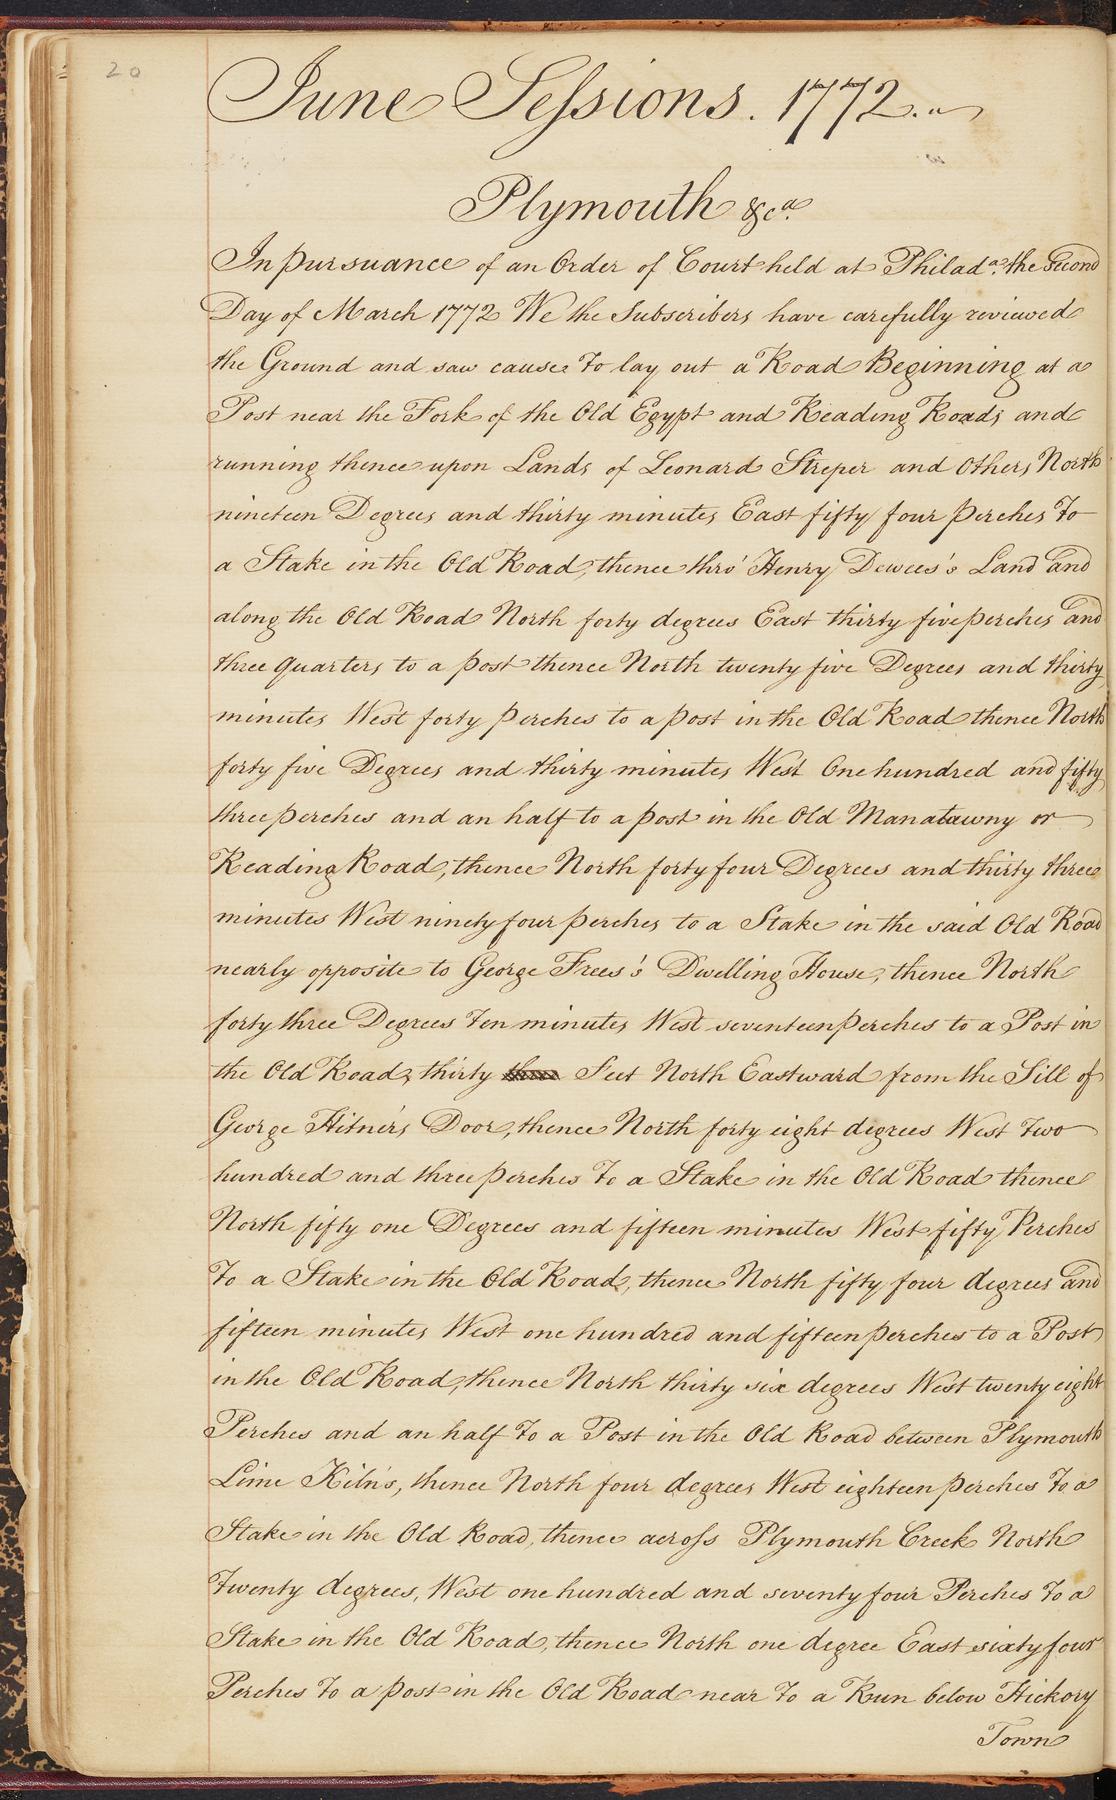 20
June Seſsions. 1772.
Plymouth &cª.
In pursuance of an Order of Court held at Philadª. the Second
Day of March 1772 We the Subscribers have carefully reviewed
the Ground and saw cause To lay out a Road Beginning at a
Post near the Fork of the Old Egypt and Reading Roads and
running thence upon Lands of Leonard Streper and Others North
nineteen Degrees and thirty minutes East fifty four perches To
a Stake in the Old Road, thence thro' Henry Dewees's Land and
along the Old Road North forty degrees East thirty five perches and
three quarters to a post thence North twenty five Degrees and thirty
minutes West forty perches to a post in the Old Road thence North
forty five Degrees and thirty minutes West One hundred and fifty
three perches and an half to a post in the Old Manatawny or
Reading Road, thence North forty four Degrees and thirty three
minutes West ninety four perches to a Stake in the said Old Road
nearly opposite to George Frees's Dwelling House, thence North
forty three Degrees Ten minutes West seventeen perches to a Post in
the Old Road, thirty Feet North Eastward from the Sill of
George Hitner's Door, thence North forty eight degrees West Two
hundred and three perches To a Stake in the Old Road thence
North fifty one Degrees and fifteen minutes West fifty Perches
To a Stake in the Old Road, thence North fifty four degrees and
fifteen minutes West one hundred and fifteen perches to a Post
in the Old Road, thence North thirty six degrees West twenty eight
Perches and an half To a Post in the Old Road between Plymouth
Lime Kiln's, thence North four degrees West eighteen perches To a
Stake in the Old Road, thence acroſs Plymouth Creek North
Twenty degrees, West one hundred and seventy four Perches To a
Stake in the Old Road, thence North one degree East sixty four
Perches To a post in the Old Road near To a Run below Hickory
Town